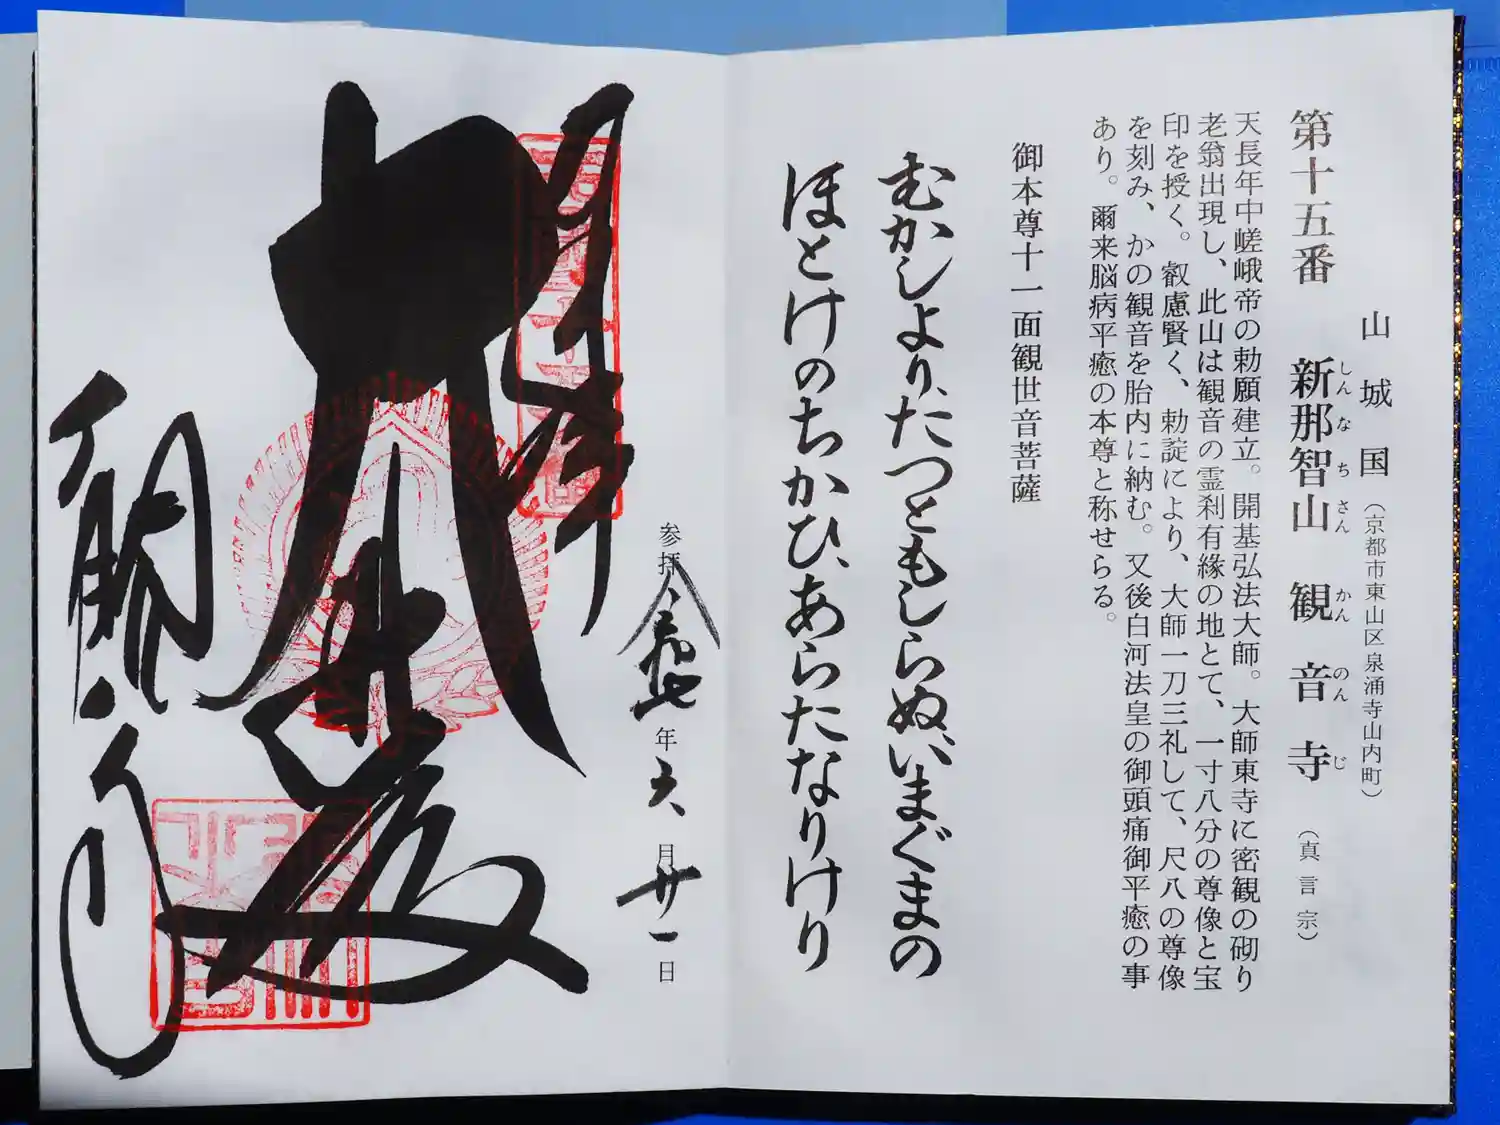 山城国(京都市東山区泉涌寺山内町)
第十五番 新那智山 観音寺(真言宗)
しんなちさん かんのんじ
天長年中嵯峨帝の勅願建立。開基弘法大師。大師東寺に密観の砌り
老翁出現し、此山は観音の霊刹有縁の地とて、一寸八分の尊像と宝
印を授く。叡慮賢く、勅諚により、大師一刀三礼して、尺八の尊像
を刻み、かの観音を胎内に納む。又後白河法皇の御頭痛御平癒の事
あり。爾来脳病平癒の本尊と称せらる。
御本尊十一面観世音菩薩
むかしより、たつともしらぬ、いまぐまの
ほとけのちかひ、あらたなりけり
参拝 令和七年六月廿一日
奉拝
大悲殿
観音寺